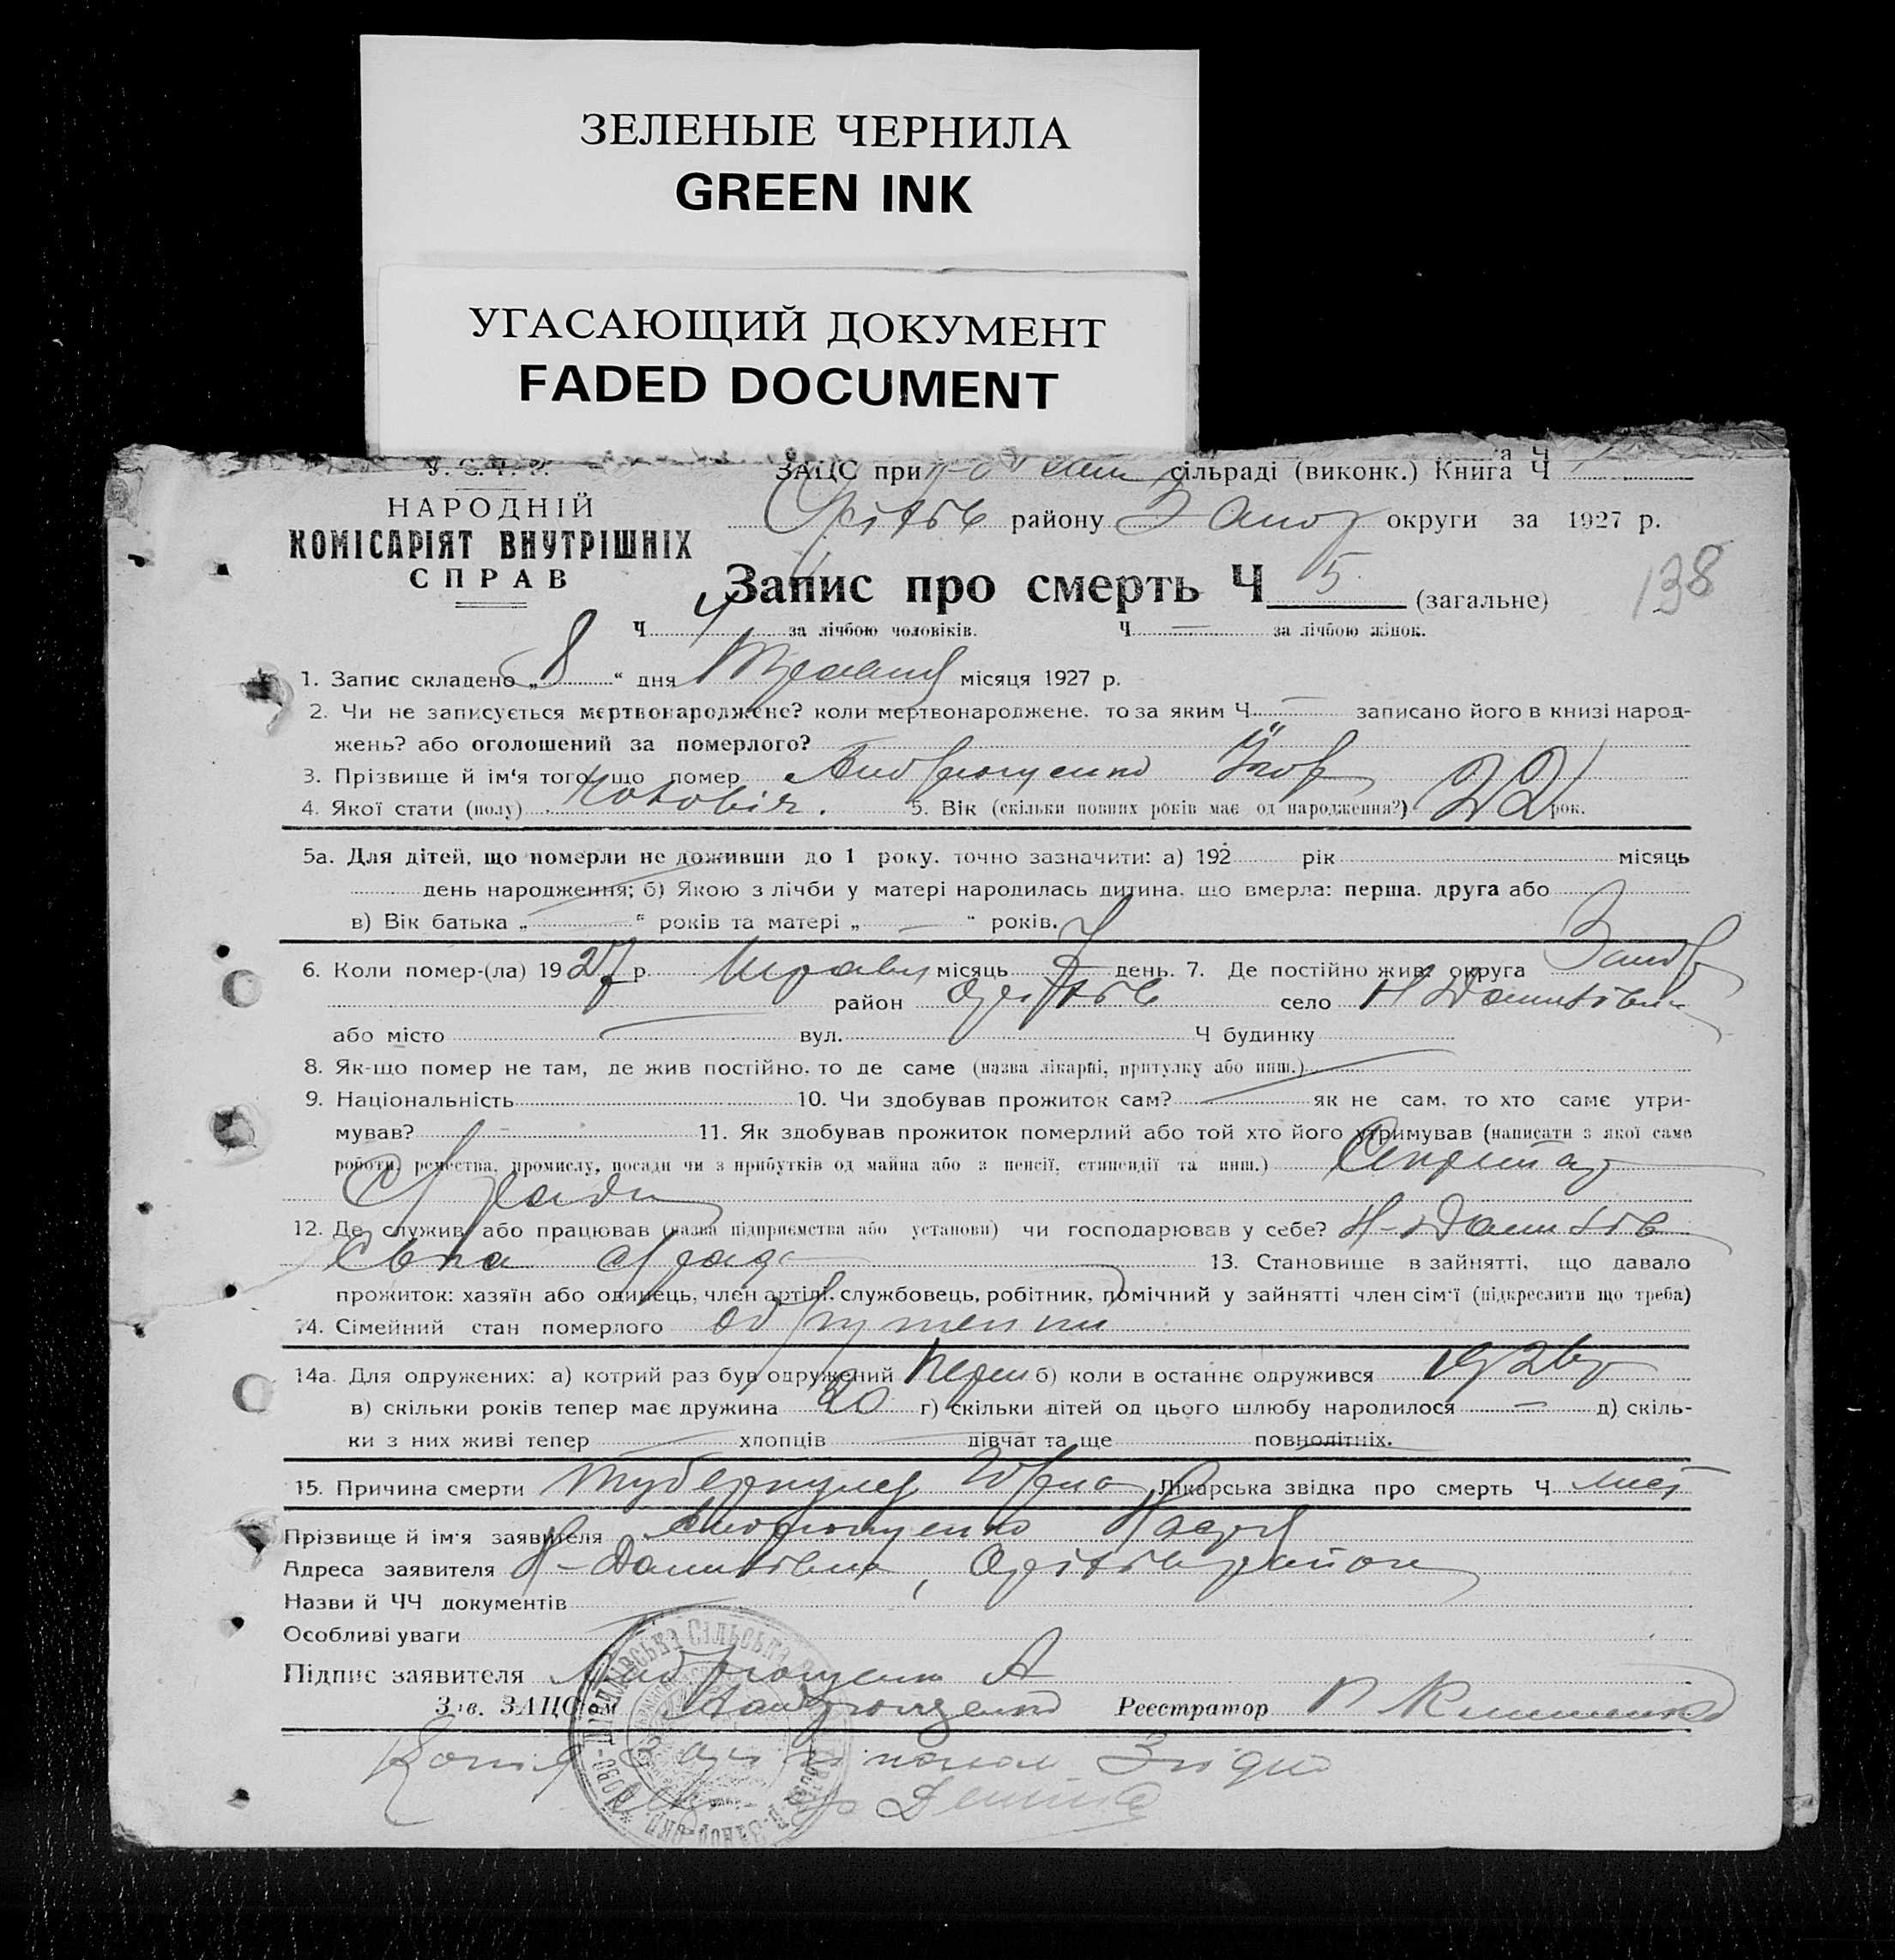 ЗЕЛЕНЫЕ ЧЕРНИЛА
GREEN INK
УГАСАЮЩИЙ ДОКУМЕНТ
FADED DOCUMENT
У. С. Р. Р.
НАРОДНІЙ
КОМІСАРІЯТ ВНУТРІШНІХ
СПРАВ
ЗАЦС при сільраді (виконк.) Книга Ч
Оріхів району Запор округи за 1927 р.
Запис про смерть Ч 5 (загальне)
138
Ч 4 за лічбою чоловіків. Ч — за лічбою жінок.
1. Запис складено „ 8 “ дня Травня місяця 1927 р.
2. Чи не записується мертвонароджене? коли мертвонароджене, то за яким Ч — записано його в книзі народ-
жень? або оголошений за померлого?
3. Прізвище й ім'я того, що помер Андрющенко
4. Якої стати (полу) Чоловіч. 5. Вік (скільки повних років має од народження?) 22 рок.
5а. Для дітей, що померли не доживши до 1 року, точно зазначити: а) 192 рік місяць
день народження; б) Якою з лічби у матері народилась дитина, що вмерла: перша, друга або
в) Вік батька „ — “ років та матері „ — “ років.
6. Коли помер-(ла) 1927 р. Травня місяць 7 день. 7. Де постійно жив: округа Запор
район Оріхів село Н Данилівка
або місто — вул. Ч будинку
8. Як-що помер не там, де жив постійно, то де саме (назва лікарні, притулку або инш.)
9. Національність 10. Чи здобував прожиток сам? — як не сам, то хто саме утри-
мував? — 11. Як здобував прожиток померлий або той хто його утримував (написати з якої саме
роботи, ремества, промислу, посади чи з прибутків од майна або з пенсії, стипендії та инш.) Секретар
С/ради
12. Де служив або працював (назва підприємства або установи) чи господарював у себе? Н-Данилів
ська с/рада 13. Становище в зайнятті, що давало
прожиток: хазяїн або одинець, член артілі, службовець, робітник, помічний у зайнятті член сім'ї (підкреслити що треба)
14. Сімейний стан померлого одружений
14а. Для одружених: а) котрий раз був одружений Перш б) коли в останнє одружився 1926 р
в) скільки років тепер має дружина 20 г) скільки дітей од цього шлюбу народилося — д) скіль-
ки з них живі тепер — хлопців — дівчат та ще повнолітніх.
15. Причина смерти туберкульоз Лікарська звідка про смерть Ч
Прізвище й ім'я заявителя Андрющенко
Адреса заявителя Н-Данилівка, Оріхів район
Назви й ЧЧ документів
Особливі уваги
Підпис заявителя Андрющенко А
Зав. ЗАЦС'ом Андрющенко Реєстратор
Копія Згідно